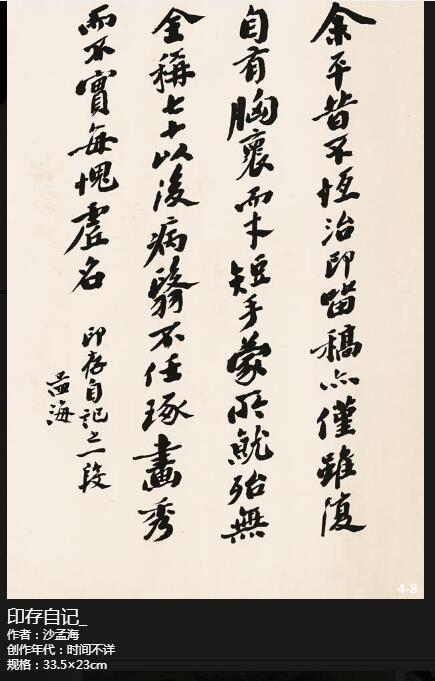 余平昔不恆治印留稿亦僅雖復
自有胸褱而才短手蒙所就殆無
全稱七十以後病翳不任琢畫秀
而不實每愧虛名
印存自記之一段
孟海
4-8
印存自记_
作者：沙孟海
创作年代：时间不详
规格：33.5×23cm